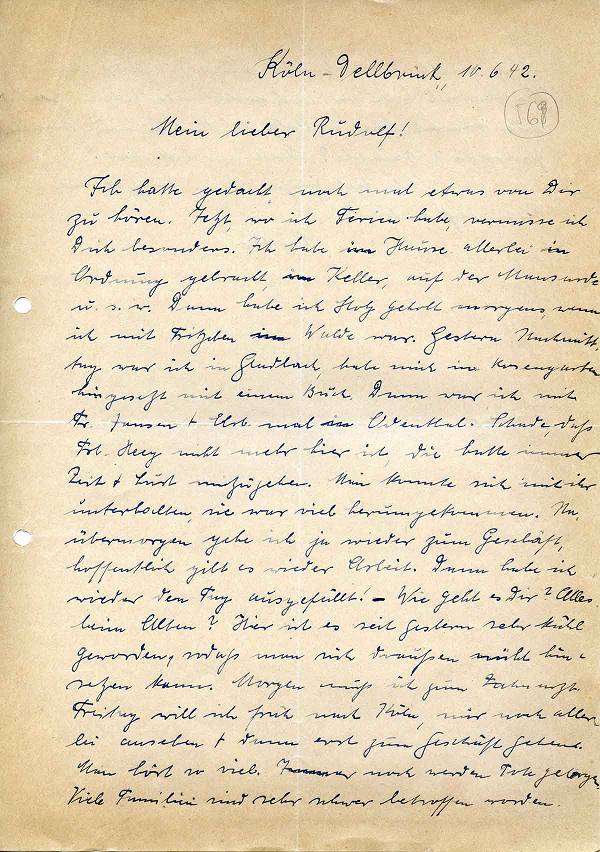 Köln-Dellbrück, 10.6.42.
568
Mein lieber Rudolf!
Ich hatte gedacht noch mal etwas von Dir
zu hören. Jetzt, wo ich Ferien habe, vermisse ich
Dich besonders. Ich habe im Hause allerlei in
Ordnung gebracht, im Keller, auf der Mansarde
u. s. w. Dann habe ich Holz geholt morgens, wenn
ich mit Fritzchen im Walde war. Gestern Nachmit-
tag war ich in Gladbach, habe mich im Rosengarten
hingesetzt mit einem Buch. Dann war ich mit
Fr. Jansen + mal in Odenthal. Schade, daß
Frl. nicht mehr hier ist, die hatte immer
Zeit + Lust mitzugehen. Man konnte sich mit ihr
unterhalten, sie war viel herumgekommen. Na,
übermorgen gehe ich ja wieder zum Geschäft,
hoffentlich gibt es wieder Arbeit. Dann habe ich
wieder den Tag ausgefüllt! – Wie geht es Dir? Alles
beim Alten? Hier ist es seit gestern sehr kühl
geworden, sodaß man sich draußen nicht hin-
setzen kann. Morgen muß ich zum Zahnarzt.
Freitag will ich früh nach Köln, mir noch aller-
lei ansehen + dann erst zum Geschäft gehen.
Man hört so viel. Immer noch werden Tote geborgen,
Viele Familien sind sehr schwer betroffen worden.